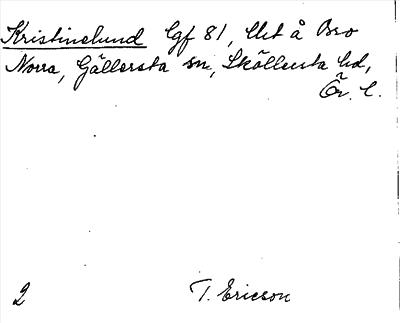 Kristinelund lgf 81, Utt å Bro
Norra, Gällersta sn, Sköllersta hd,
Ör. l.
2 T. Ericson